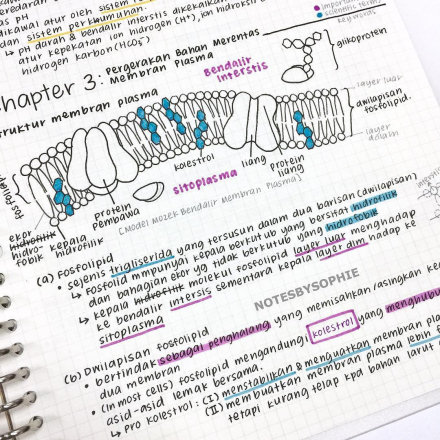 dikawal atur oleh sistem
dan sistem perkumuhan.
↳ pH darah & bendalir interstis dikekalkan
atur kepekatan ion hidrogen (H⁺), ion hidroksi
hidrogen karbon (HCO₃⁻)
important
scientific terms
keywords
Chapter 3: Pergerakan Bahan Merentas
Membran Plasma
struktur membran plasma
Bendalir
Interstis
glikoprotein
layer luar
dwilapisan
fosfolipid
layer
dalam
fosfolipid
kolestrol
liang
protein
liang
sitoplasma
protein
pembawa
[Model Mozek Bendalir Membran Plasma]
ekor
hidrofilik
hidro-
fobik
kepala
hidrofilik
(a) Fosfolipid
• sejenis trigliserida yang tersusun dalam dua barisan (dwilapisan)
↳ Fosfolid mmpunyai kepala berkutub yang bersifat hidrofilik
dan bahagian ekor yg tidak berkutub yang hidrofobik
↳ kepala hidrofilik molekul fosfolipid layer luar menghadap
ke bendalir intersis sementara kepala layer dlm hadap ke
sitoplasma
NOTESBYSOPHIE
(b) Dwilapisan fosfolipid
• bertindak sebagai penghalang yang memisahkan/asingkan
dua membran
• (In most cells) fosfolipid mengandungi kolestrol yang menghubung
asid-asid lemak bersama.
↳ pro kolestrol: (I) menstabilkan & menguatkan membran
(II) membuatkan membran plasma lebih
tetapi kurang telap kpd bahan larut